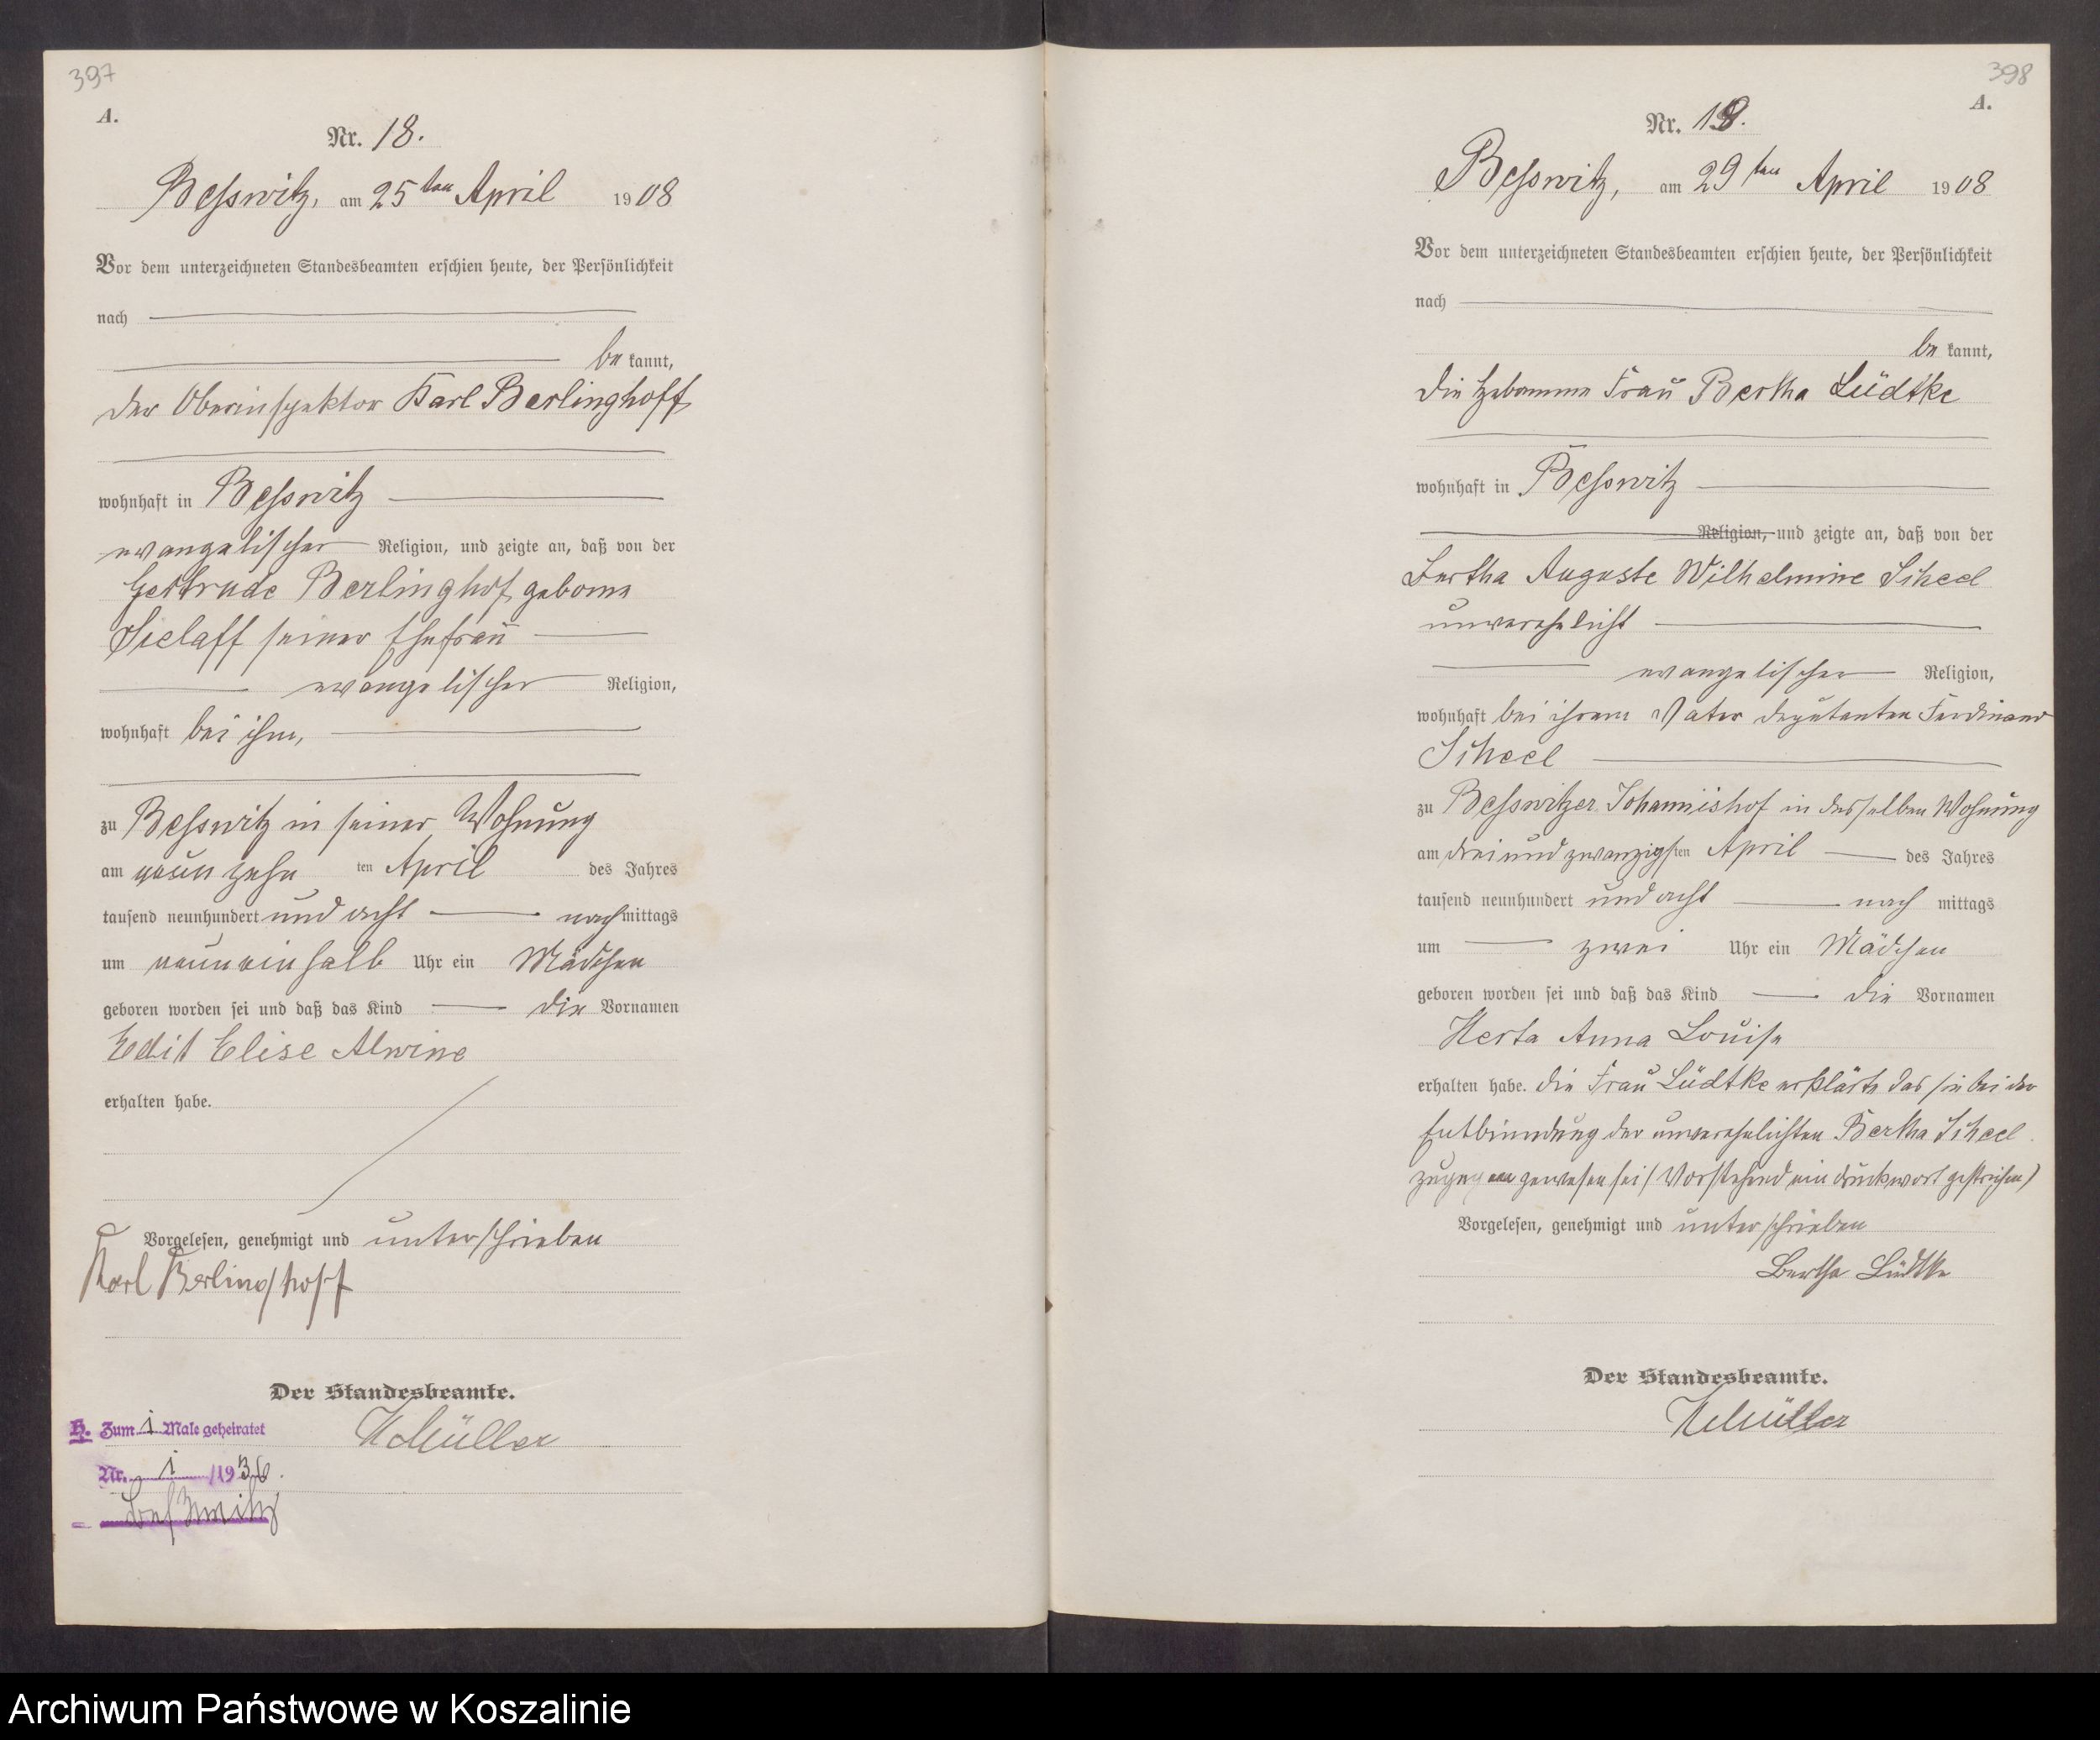 397
A.
Nr. 18.
Besswitz, am 25ten April 1908
Vor dem unterzeichneten Standesbeamten erschien heute, der Persönlichkeit
nach
be kannt,
der Oberinspektor Karl Berlinghoff
wohnhaft in Besswitz
evangelischer Religion, und zeigte an, daß von der
Gertrude Berlinghof geborne
Sielaff seiner Ehefrau
evangelischer Religion,
wohnhaft bei ihm,
zu Besswitz in seiner Wohnung
am neunzehn ten April des Jahres
tausend neunhundert und acht nachmittags
um neuneinhalb Uhr ein Mädchen
geboren worden sei und daß das Kind die Vornamen
Edit Elise Alwine
erhalten habe.
Vorgelesen, genehmigt und unterschrieben
Karl Berlinghoff
Der Standesbeamte.
Müller
H. Zum 1 Male geheiratet
Nr. 1 /1936.
Beßwitz
398
A.
Nr. 19.
Besswitz, am 29ten April 1908
Vor dem unterzeichneten Standesbeamten erschien heute, der Persönlichkeit
nach
be kannt,
die Hebamme Frau Bertha Lüdtke
wohnhaft in Besswitz
Religion, und zeigte an, daß von der
Bertha Auguste Wilhelmine Scheel
unverehelicht
evangelischer Religion,
wohnhaft bei ihrem Vater Deputanten Ferdinand
Scheel
zu Besswitzer Johannishof in desselben Wohnung
am dreiundzwanzigsten April des Jahres
tausend neunhundert und acht nach mittags
um zwei Uhr ein Mädchen
geboren worden sei und daß das Kind die Vornamen
Herta Anna Louise
erhalten habe. die Frau Lüdtke erklärte das sie bei der
Entbindung der unverehelichten Bertha Scheel
zugegen gewesen sei (Vorstehend ein Druckwort gestrichen)
Vorgelesen, genehmigt und unterschrieben
Bertha Lüdtke
Der Standesbeamte.
Müller
Archiwum Państwowe w Koszalinie